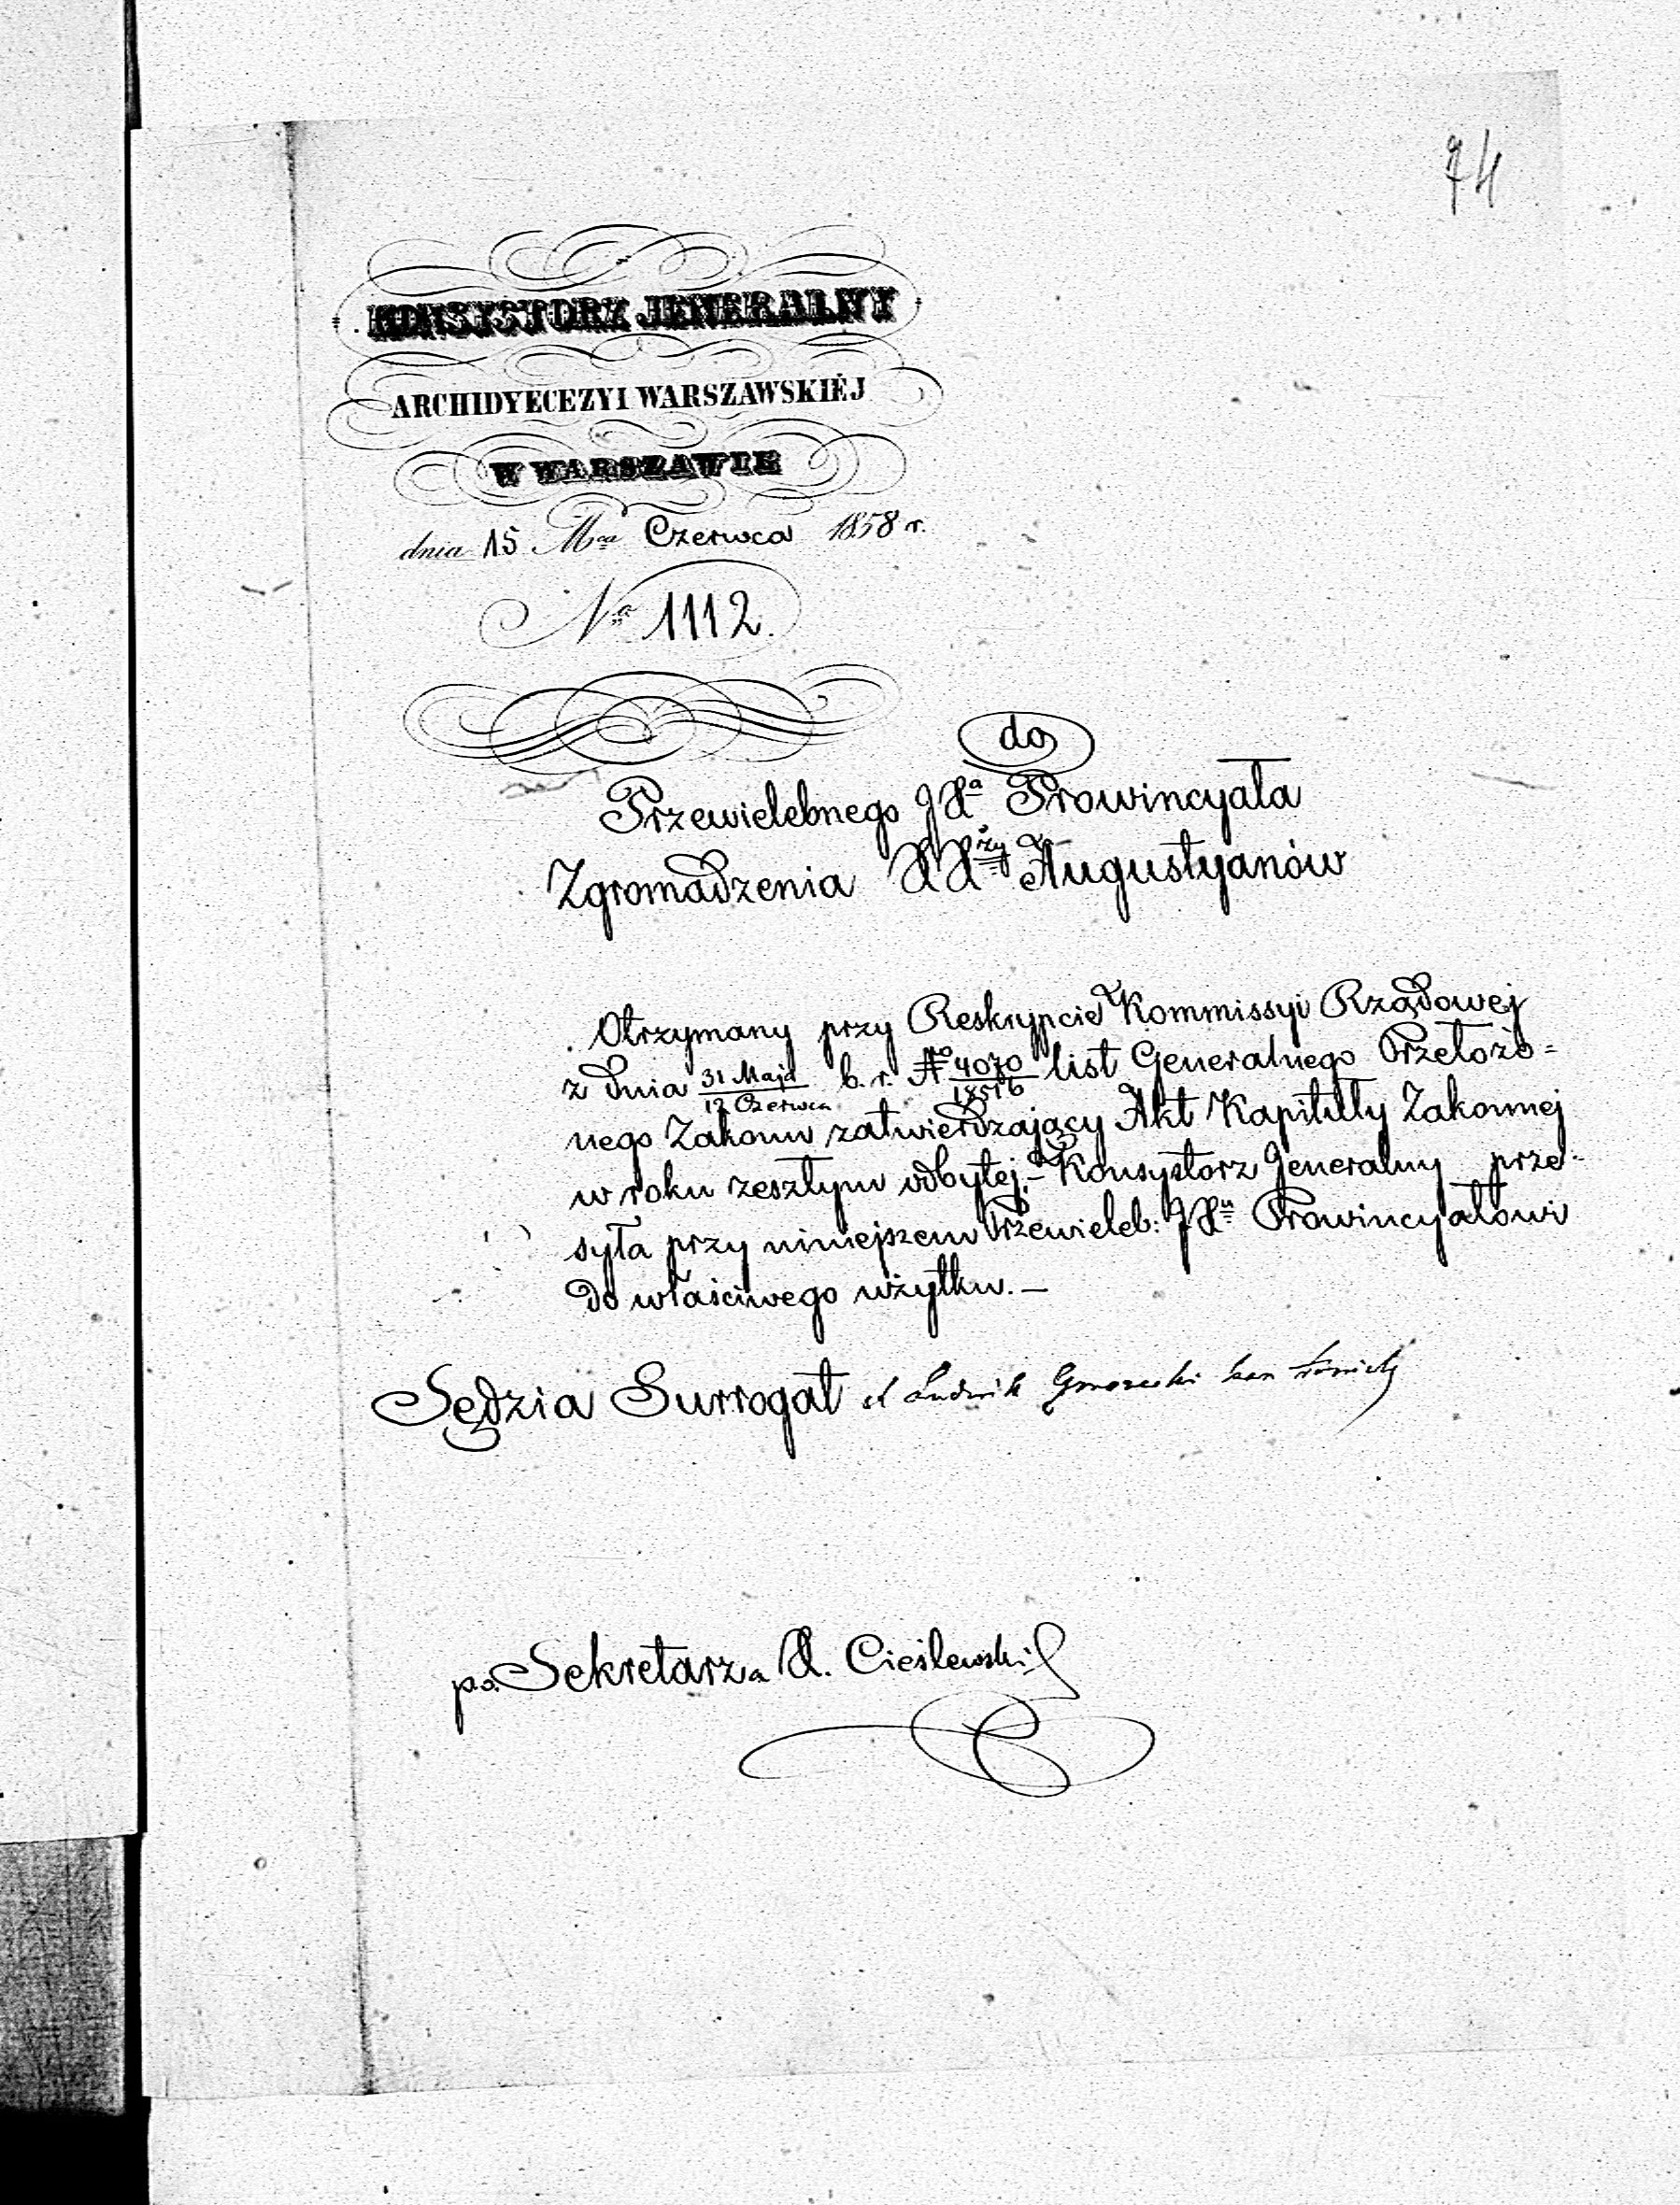 74
KONSYSTORZ JENERALNY
ARCHIDYECEZYI WARSZAWSKIÉJ
W WARSZAWIE
dnia 15 Mca Czerwca 1858 r.
No 1112.
do
Przewielebnego JXa Prowincyała
Zgromadzenia XXży Augustyanów
Otrzymany przy Reskrypcie Kommissyi Rządowej
z dnia 31 Maja/12 Czerwca b. r. No 4070/18516 list Generalnego Przełożo=
nego Zakonu zatwierdzający Akt Kapituły Zakonnej
w roku zeszłym odbytej,– Konsystorz Generalny prze-
syła przy niniejszem Przewieleb: JXu Prowincyałowi
do właściwego użytku.–
Sędzia Surrogat X Ludwik
po. Sekretarza X. Cieślewski